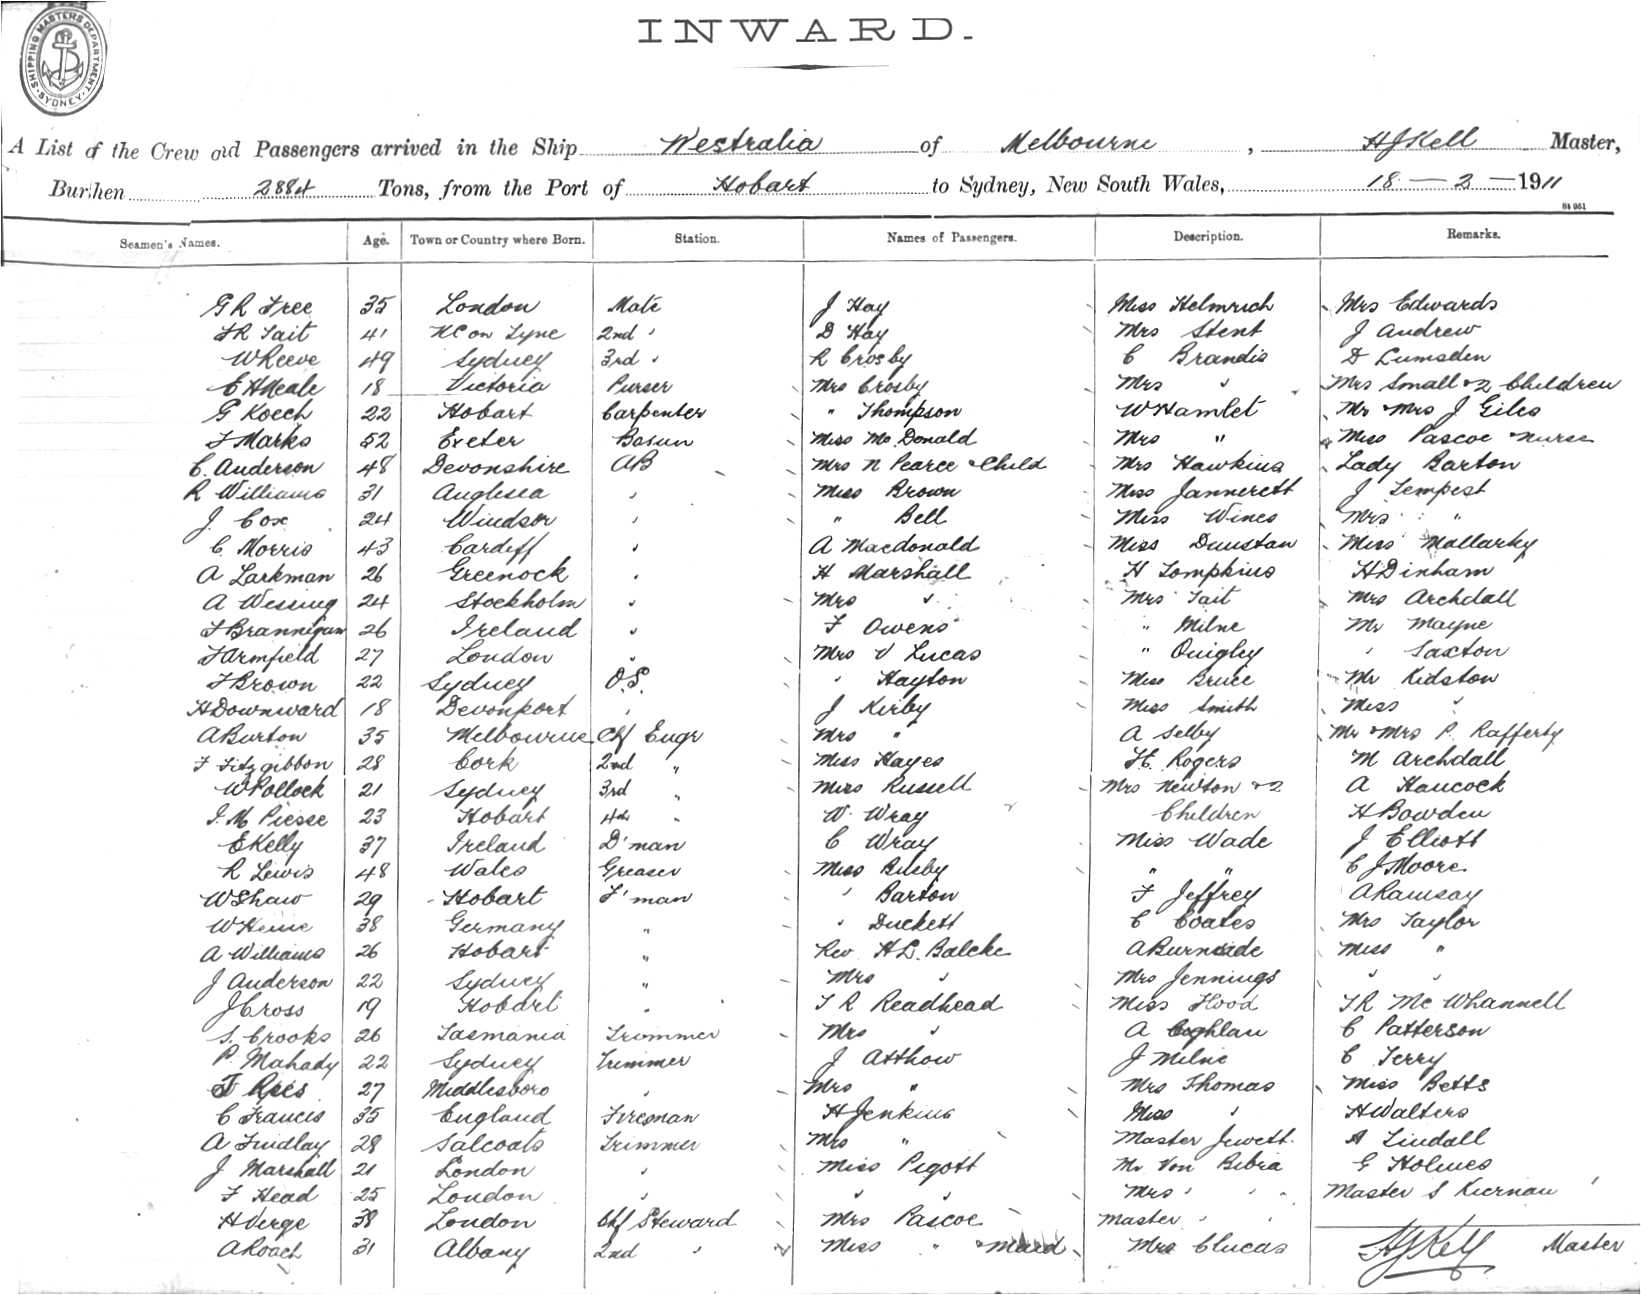 SHIPPING MASTERS DEPARTMENT SYDNEY
INWARD.
A List of the Crew and Passengers arrived in the Ship Westralia of Melbourne, HJ Kell Master,
Burthen 2884 Tons, from the Port of Hobart to Sydney, New South Wales, 18 - 2 - 1911
Seamen's Names. Age. Town or Country where Born. Station. Names of Passengers. Description. Remarks.
G R Free 35 London Mate J Hay Miss Helmrich Mrs Edwards
F R Tait 41 NC on Tyne 2nd " D Hay Mrs Stent J Andrew
W Reeve 49 Sydney 3rd " R Crosby C Brandis D Lumsden
E H Neale 18 Victoria Purser Mrs Crosby Mrs " Mrs Small & 2 Children
G Koech 22 Hobart Carpenter " Thompson W Hamlet Mr & Mrs J Giles
F Marks 52 Exeter Bosun Miss McDonald Mrs " Miss Pascoe Nurse
C. Anderson 48 Devonshire AB Mrs N Pearce & Child Mrs Hawkins Lady Barton
R Williams 31 Anglesea " Miss Brown Miss Jannerett J Tempest
J. Cox 24 Windsor " " Bell Miss Wines Mrs "
C. Morris 43 Cardiff " A Macdonald Miss Dunstan Miss Mallarky
A Larkman 26 Greenock " H Marshall H Tompkins H Dinham
A Wessing 24 Stockholm " Mrs " Mrs Tait Mrs Archdall
F Brannigan 26 Ireland " F Owens " Milne Mr Mayne
F Armfield 27 London " Mrs V Lucas " Quigley " Saxton
F Brown 22 Sydney O.S. " Hayton Miss Bruce Mr Kidston
H Downward 18 Devonport " J Kirby Miss Smith Miss "
A Burton 35 Melbourne Chf Engr Mrs " A Selby Mr & Mrs P. Rafferty
F Fitzgibbon 28 Cork 2nd " Miss Hayes H. Rogers M Archdall
W Pollock 21 Sydney 3rd " Miss Russell Mrs Newton & 2 A Hancock
I. M Piesse 23 Hobart 4th " W. Wray Children H Bowden
E Kelly 37 Ireland D'man C Wray Miss Wade J Elliott
R Lewis 48 Wales Greaser Miss Busby " " C J Moore
W Shaw 29 Hobart F'man " Barton F Jeffrey A Ramsay
W Heine 38 Germany " " Duckett C Coates Mrs Taylor
A Williams 26 Hobart " Rev H L. Balcke A Burnside Miss "
J Anderson 22 Sydney " Mrs " Mrs Jennings " "
J Cross 19 Hobart " T R Readhead Miss Hood T R McWhannell
S. Crooks 26 Tasmania Trimmer Mrs " A Coghlan C Patterson
P. Mahady 22 Sydney Trimmer J Atthow J Milne C Terry
Rees 27 Middlesboro " Mrs " Mrs Thomas Miss Betts
C Francis 35 England Fireman H Jenkins Miss " H Walters
A Findlay 28 Salcoats Trimmer Mrs " Master Jewett. A Tindall
J Marshall 21 London " Miss Pigott Mr Von Bibra G Holmes
F Head 25 London " " " Mrs " " Master S Kiernan
H Verge 38 London Chf Steward Mrs Pascoe Master " "
A Roach 31 Albany 2nd " Miss " & Maid Mrs Clucas HJ Kell Master